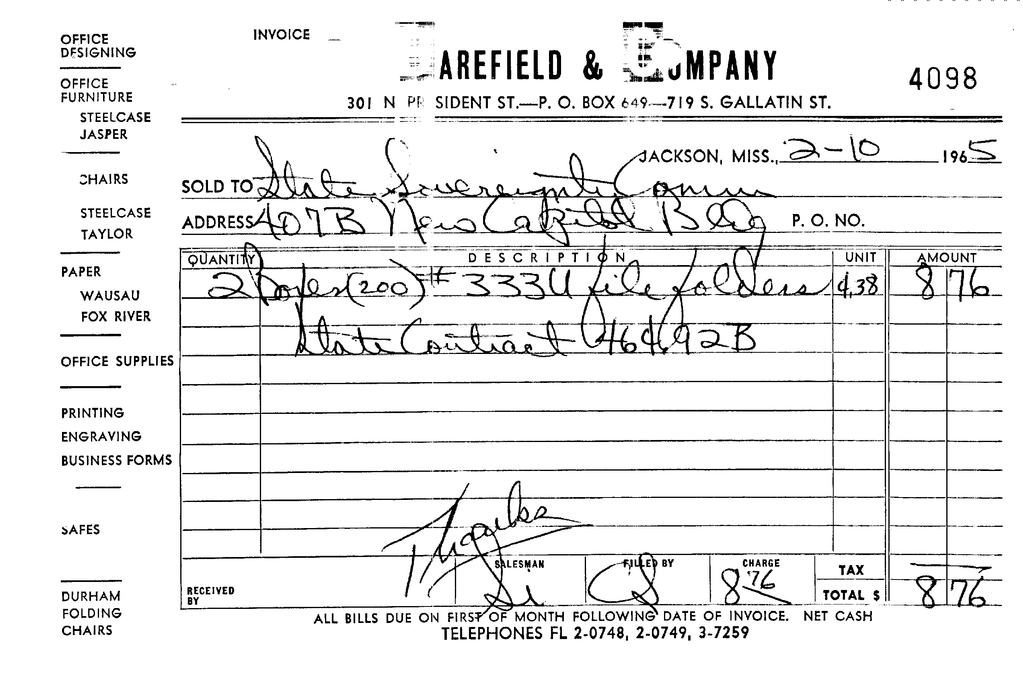 OFFICE
DESIGNING
OFFICE
FURNITURE
STEELCASE
JASPER
CHAIRS
STEELCASE
TAYLOR
PAPER
WAUSAU
FOX RIVER
OFFICE SUPPLIES
PRINTING
ENGRAVING
BUSINESS FORMS
SAFES
DURHAM
FOLDING
CHAIRS
INVOICE
BAREFIELD & COMPANY
4098
301 N PR SIDENT ST.—P. O. BOX 649—719 S. GALLATIN ST.
JACKSON, MISS., 2-10 1965
SOLD TO State Sovereignty Comm
ADDRESS 407B New Capitol Bldg P. O. NO.
QUANTITY DESCRIPTION UNIT AMOUNT
2 Boxes (200) # 333U file folders 4.38 8 76
State Contract 464-92B
Thanks
RECEIVED BY SALESMAN Si FILLED BY CHARGE 8 76 TAX
TOTAL $ 8 76
ALL BILLS DUE ON FIRST OF MONTH FOLLOWING DATE OF INVOICE. NET CASH
TELEPHONES FL 2-0748, 2-0749, 3-7259